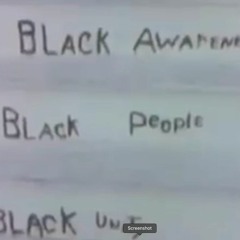 BLACK AWARENE
BLACK People
BLACK UNIT
Screenshot